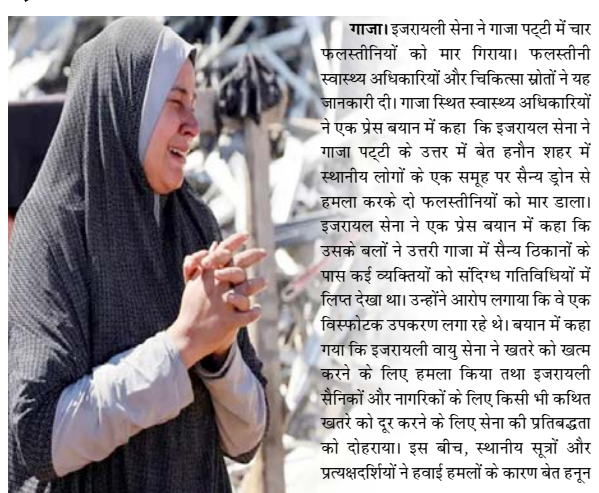 गाजा। इजरायली सेना ने गाजा पट्टी में चार
फलस्तीनियों को मार गिराया। फलस्तीनी
स्वास्थ्य अधिकारियों और चिकित्सा स्रोतों ने यह
जानकारी दी। गाजा स्थित स्वास्थ्य अधिकारियों
ने एक प्रेस बयान में कहा कि इजरायल सेना ने
गाजा पट्टी के उत्तर में बेत हनौन शहर में
स्थानीय लोगों के एक समूह पर सैन्य ड्रोन से
हमला करके दो फलस्तीनियों को मार डाला।
इजरायल सेना ने एक प्रेस बयान में कहा कि
उसके बलों ने उत्तरी गाजा में सैन्य ठिकानों के
पास कई व्यक्तियों को संदिग्ध गतिविधियों में
लिप्त देखा था। उन्होंने आरोप लगाया कि वे एक
विस्फोटक उपकरण लगा रहे थे। बयान में कहा
गया कि इजरायली वायु सेना ने खतरे को खत्म
करने के लिए हमला किया तथा इजरायली
सैनिकों और नागरिकों के लिए किसी भी कथित
खतरे को दूर करने के लिए सेना की प्रतिबद्धता
को दोहराया। इस बीच, स्थानीय सूत्रों और
प्रत्यक्षदर्शियों ने हवाई हमलों के कारण बेत हनून